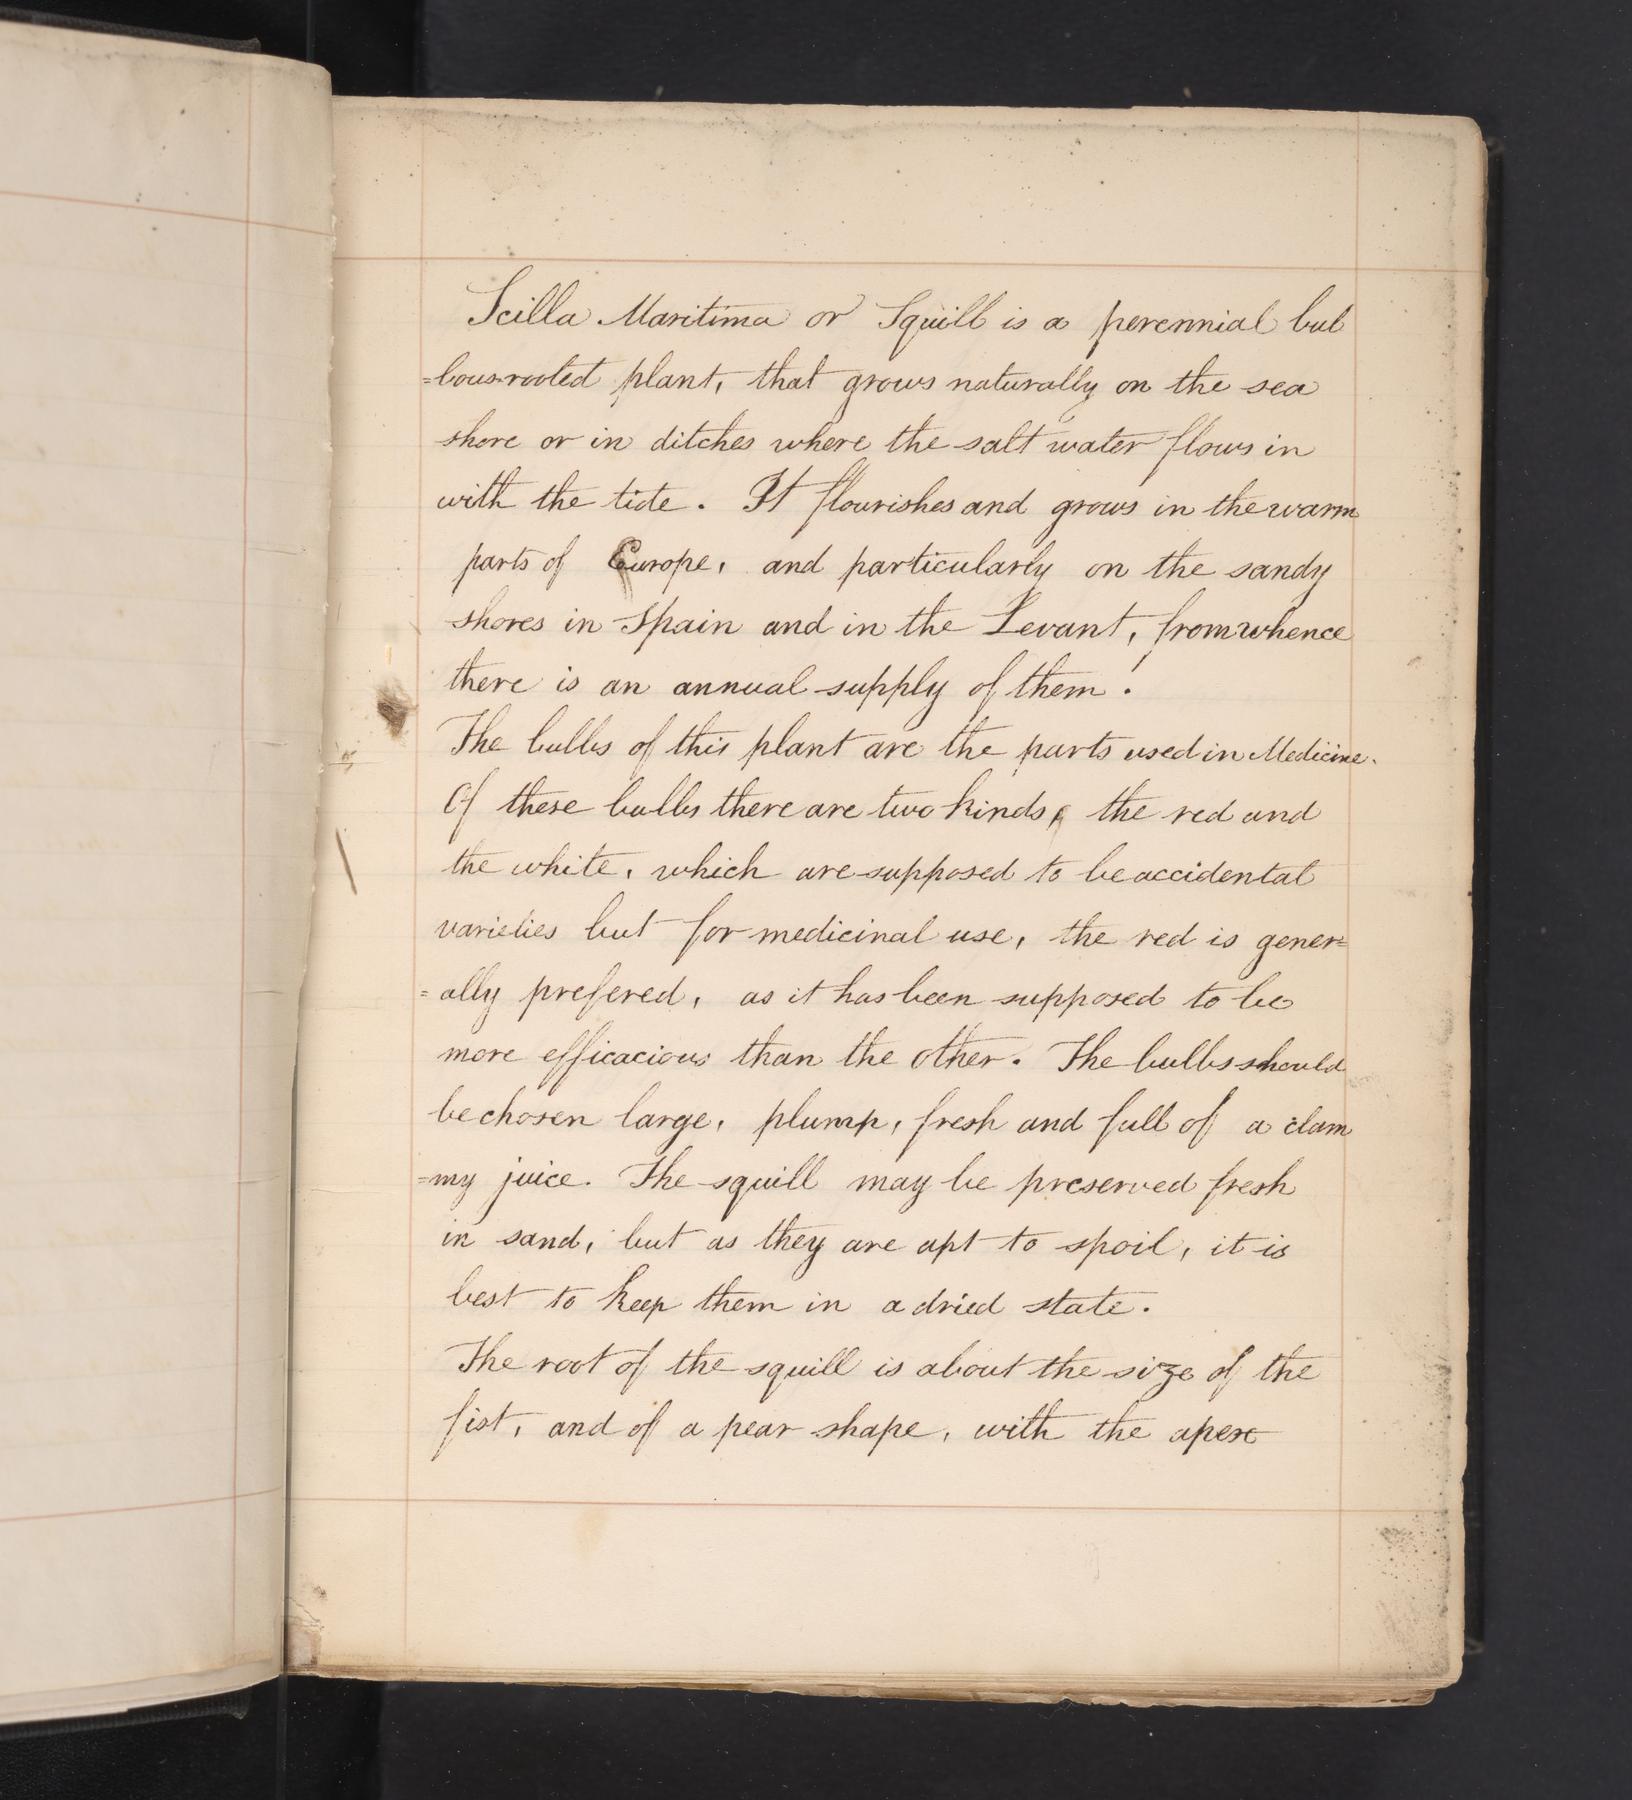 Scilla Maritima or Squill is a perennial bul
=bous-rooted plant, that grows naturally on the sea
shore or in ditches where the salt water flows in
with the tide. It flourishes and grows in the warm
parts of Europe, and particularly on the sandy
shores in Spain and in the Levant, from whence
there is an annual supply of them.
The bulbs of this plant are the parts used in Medicine.
Of these bulbs there are two kinds, the red and
the white, which are supposed to be accidental
varieties but for medicinal use, the red is gener=
=ally prefered, as it has been supposed to be
more efficacious than the other. The bulbs should
be chosen large, plump, fresh and full of a clam
=my juice. The squill may be preserved fresh
in sand, but as they are apt to spoil, it is
best to keep them in a dried state.
The root of the squill is about the size of the
fist, and of a pear shape, with the apex